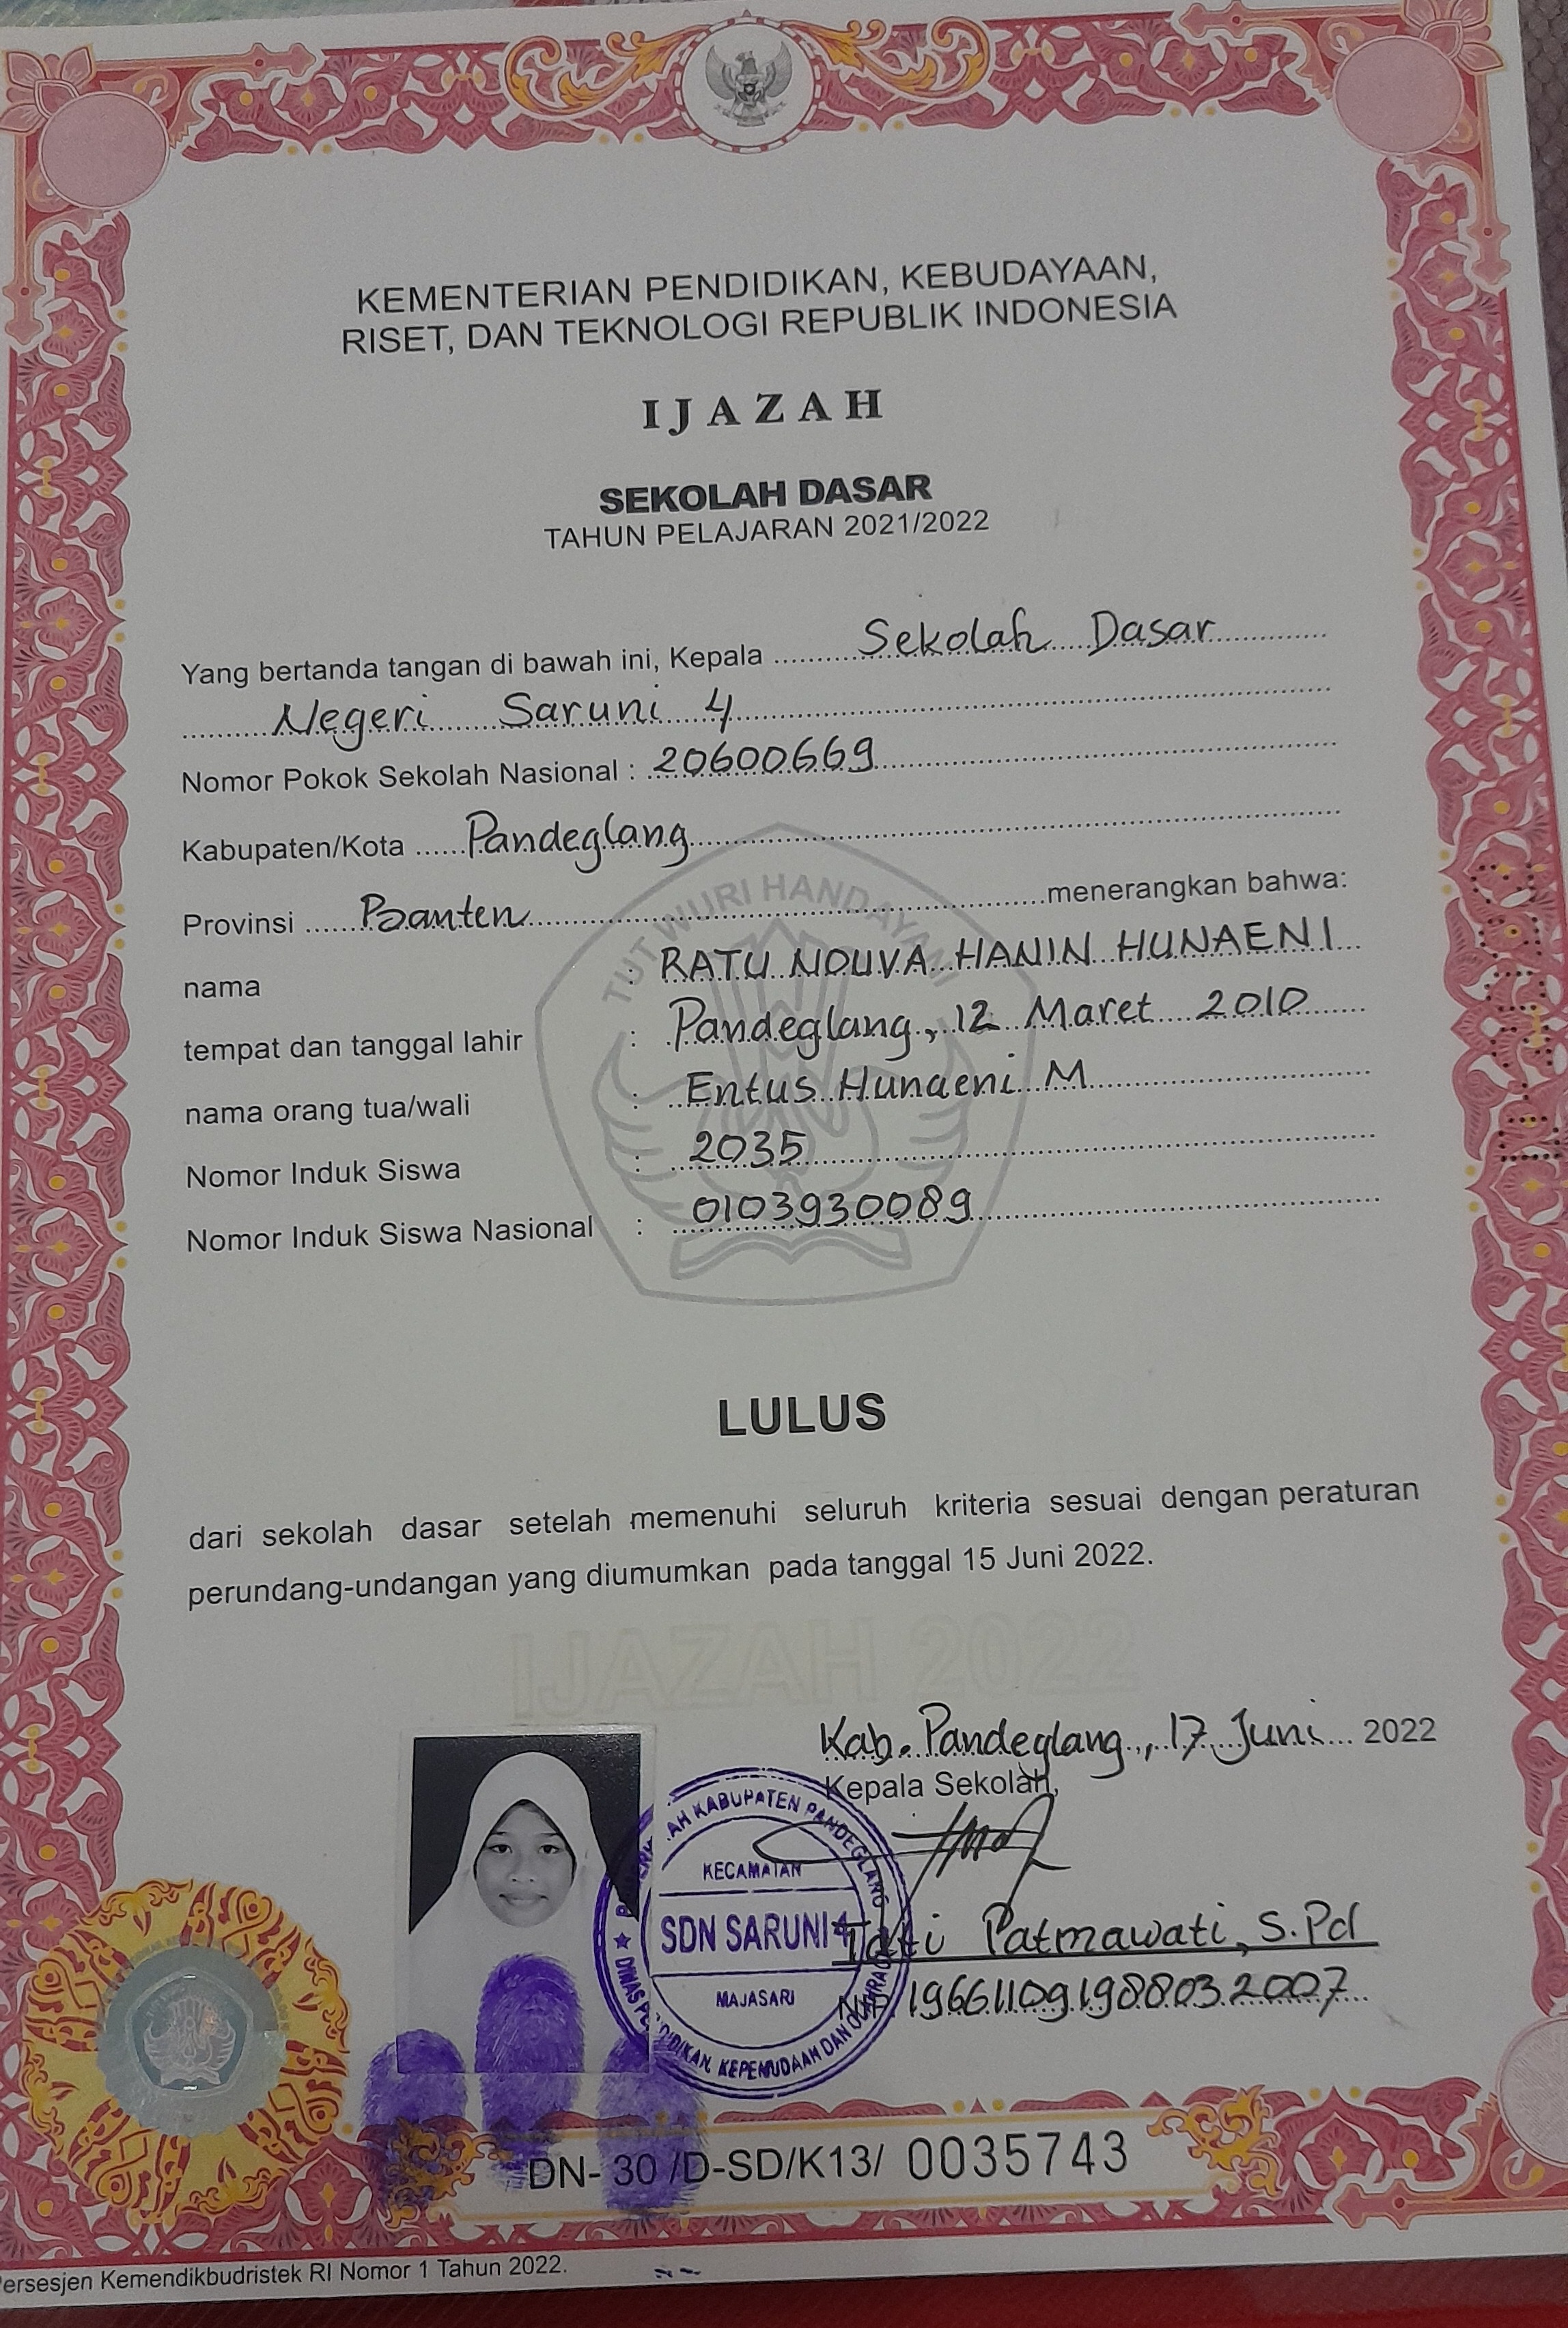 KEMENTERIAN PENDIDIKAN, KEBUDAYAAN,
RISET, DAN TEKNOLOGI REPUBLIK INDONESIA
IJAZAH
SEKOLAH DASAR
TAHUN PELAJARAN 2021/2022
Yang bertanda tangan di bawah ini, Kepala Sekolah Dasar
Negeri Saruni 4
Nomor Pokok Sekolah Nasional : 20600669
Kabupaten/Kota Pandeglang
Provinsi Banten menerangkan bahwa:
TUT WURI HANDAYANI
nama : RATU NOUVA HANIN HUNAENI
tempat dan tanggal lahir : Pandeglang, 12 Maret 2010
nama orang tua/wali : Entus Hunaeni M
Nomor Induk Siswa : 2035
Nomor Induk Siswa Nasional : 0103930089
LULUS
dari sekolah dasar setelah memenuhi seluruh kriteria sesuai dengan peraturan
perundang-undangan yang diumumkan pada tanggal 15 Juni 2022.
IJAZAH 2022
Kab. Pandeglang, 17 Juni 2022
Kepala Sekolah,
KABUPATEN PANDEGLANG
KECAMATAN
SDN SARUNI 4
MAJASARI
KEPEMUDAAN DAN OLAHRAGA
Tati Patmawati, S.Pd
NIP. 196611091988032007
DN- 30 /D-SD/K13/ 0035743
Persesjen Kemendikbudristek RI Nomor 1 Tahun 2022.